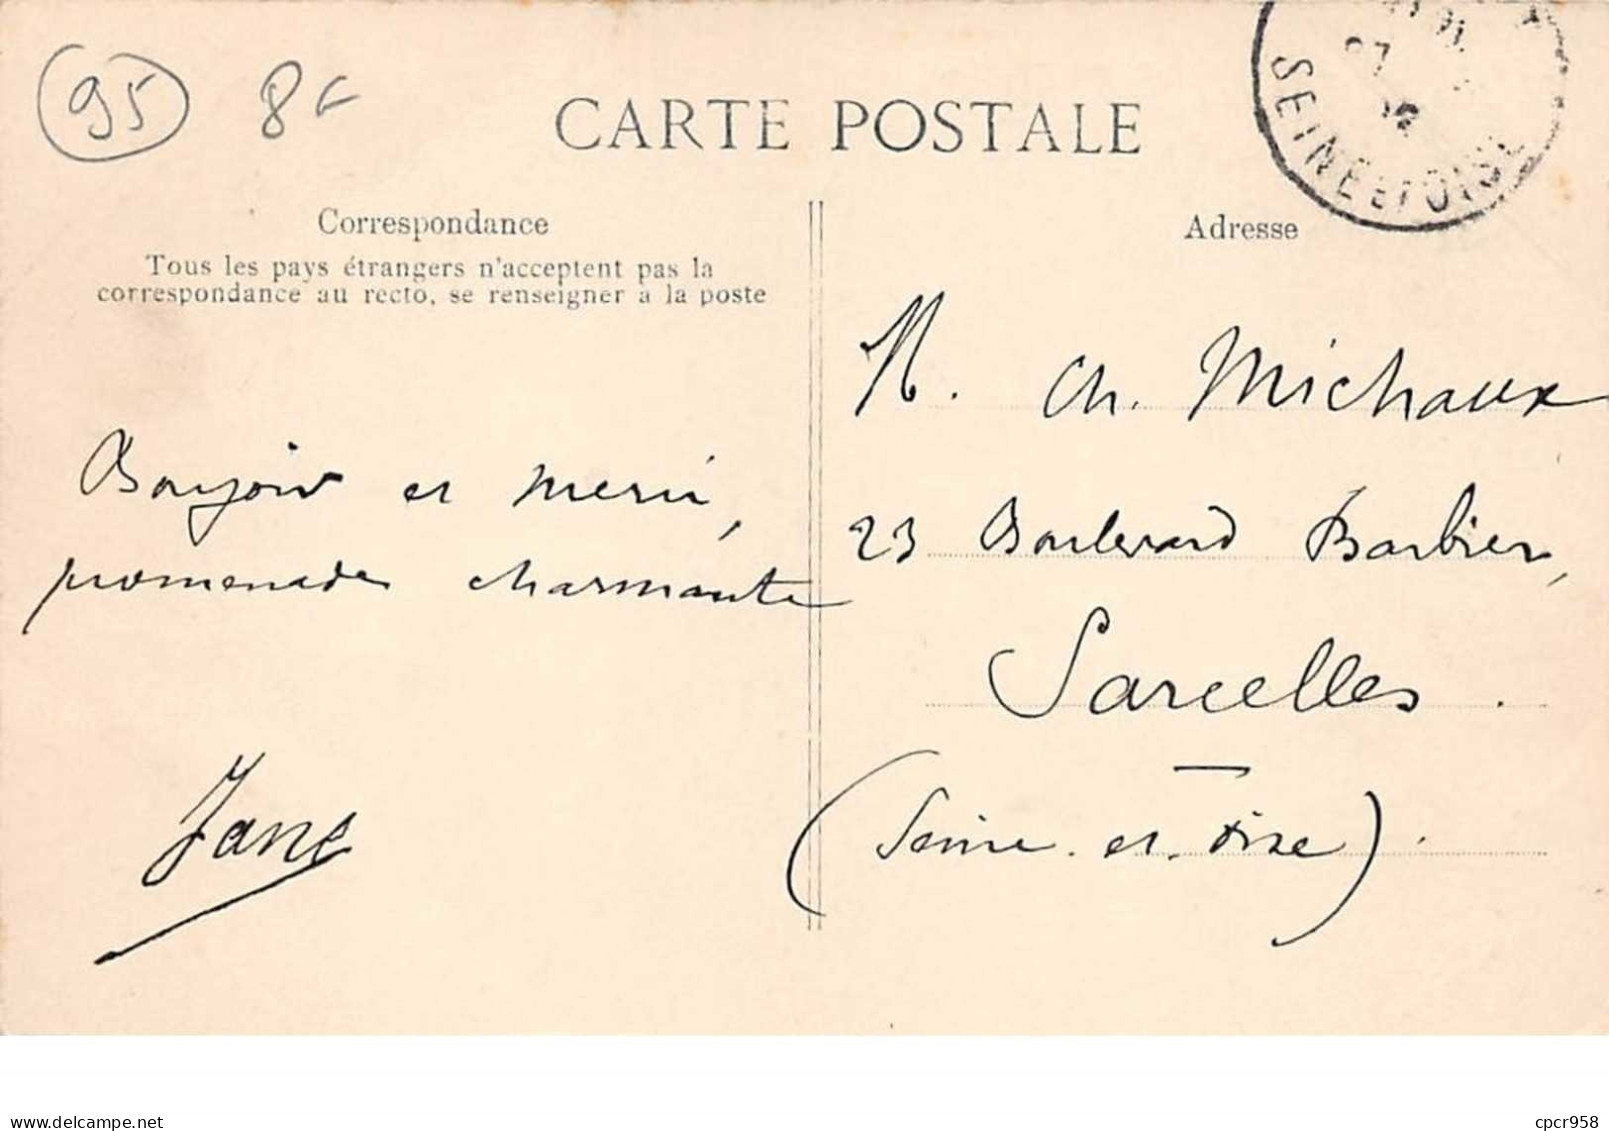 95 8F
CARTE POSTALE
SEINE ET OISE
Correspondance
Tous les pays étrangers n'acceptent pas la
correspondance au recto, se renseigner à la poste
Adresse
M. Ch. Michaux
23 Boulevard Barbier,
Sarcelles.
(Seine-et-Oise).
Bonjour et merci,
promenade charmante
Jane
www.delcampe.net
cpcr958